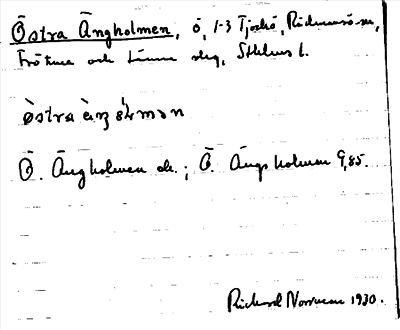 Östra Ängholmen, ö, 1-3 Tjockö, Rödmansö sn,
Frötuna och Länna skg, Sthlms l.
östra äŋ
Ö. Ängholmen ek.; Ö. Ängsholmen G, 85.
Richard Norrman 1930.